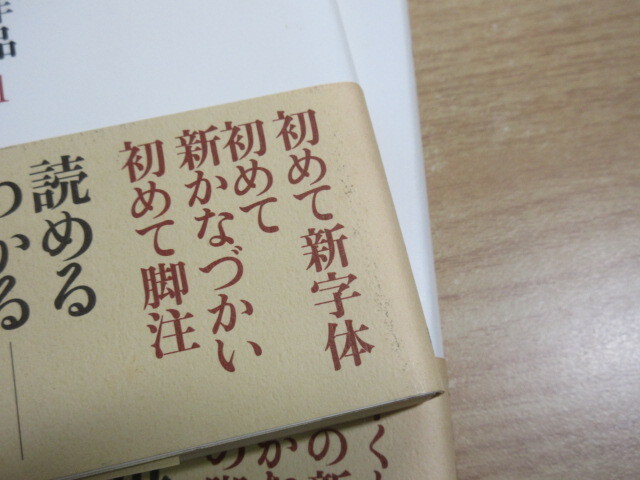 初めて新字体
初めて
新かなづかい
初めて脚注
読める
わかる—
品
1